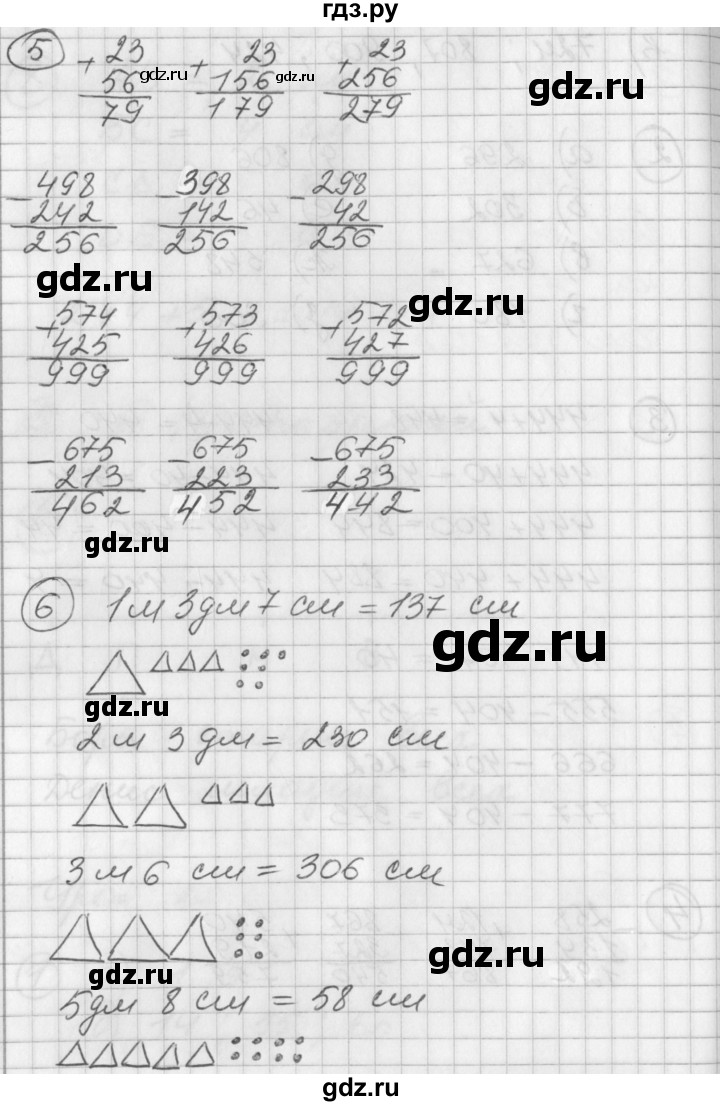 гдз.ру
5
+ 23 + 23 + 23
56 156 256
79 179 279
gdz.ru gdz.ru gdz.ru
- 498 - 398 - 298
242 142 42
256 256 256
gdz.ru gdz.ru
+ 574 + 573 + 572
425 426 427
999 999 999
- 675 - 675 - 675
213 223 233
462 452 442
gdz.ru gdz.ru
6 1 м 3 дм 7 см = 137 см
gdz.ru
gdz.ru
2 м 3 дм = 230 см
3 м 6 см = 306 см
gdz.ru gdz.ru
5 дм 8 см = 58 см
gdz.ru